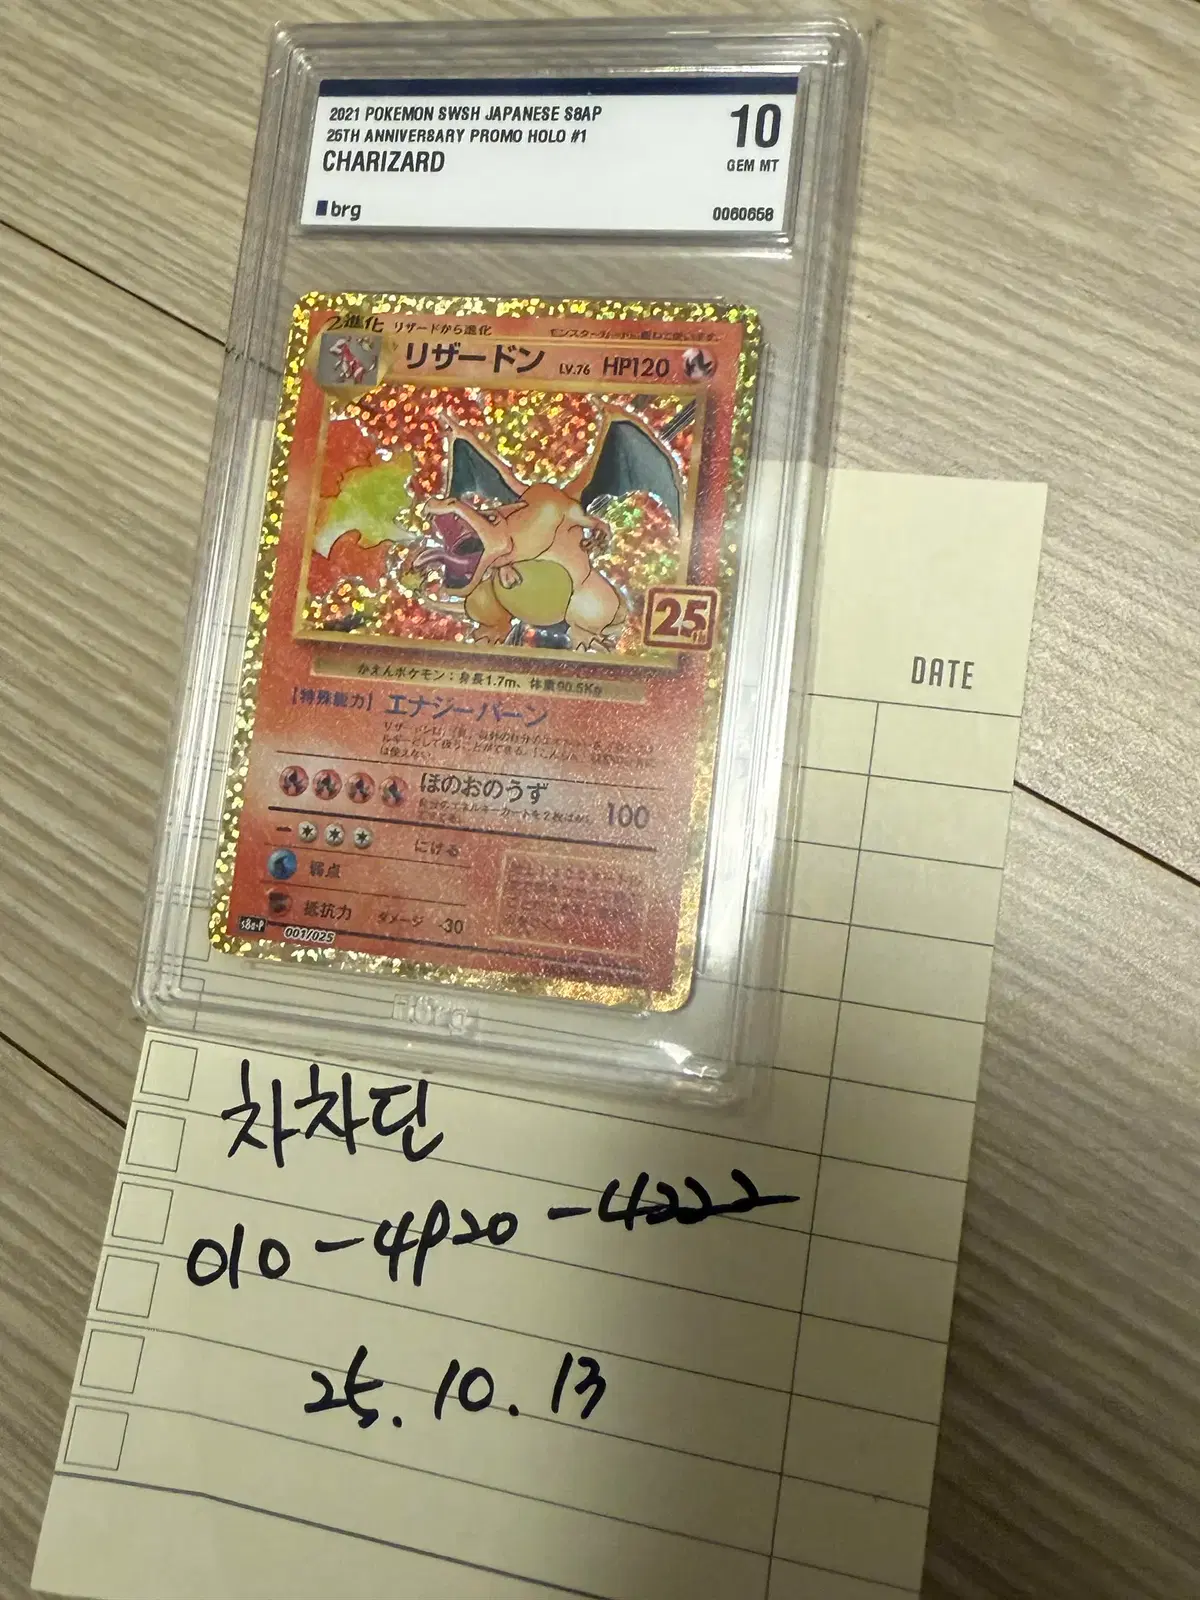 2021 POKEMON SWSH JAPANESE S8AP
25TH ANNIVERSARY PROMO HOLO #1
CHARIZARD
10
GEM MT
brg
0060658
2進化 リザードから進化
リザードン LV.76 HP120
25
かえんポケモン：身長1.7m、体重90.5Kg
【特殊能力】 エナジーバーン
ほのおのうず
100
にげる
弱点
抵抗力 ダメージ -30
s8a-P 001/025
brg
DATE
차차딘
010-4920-4222
25.10.13